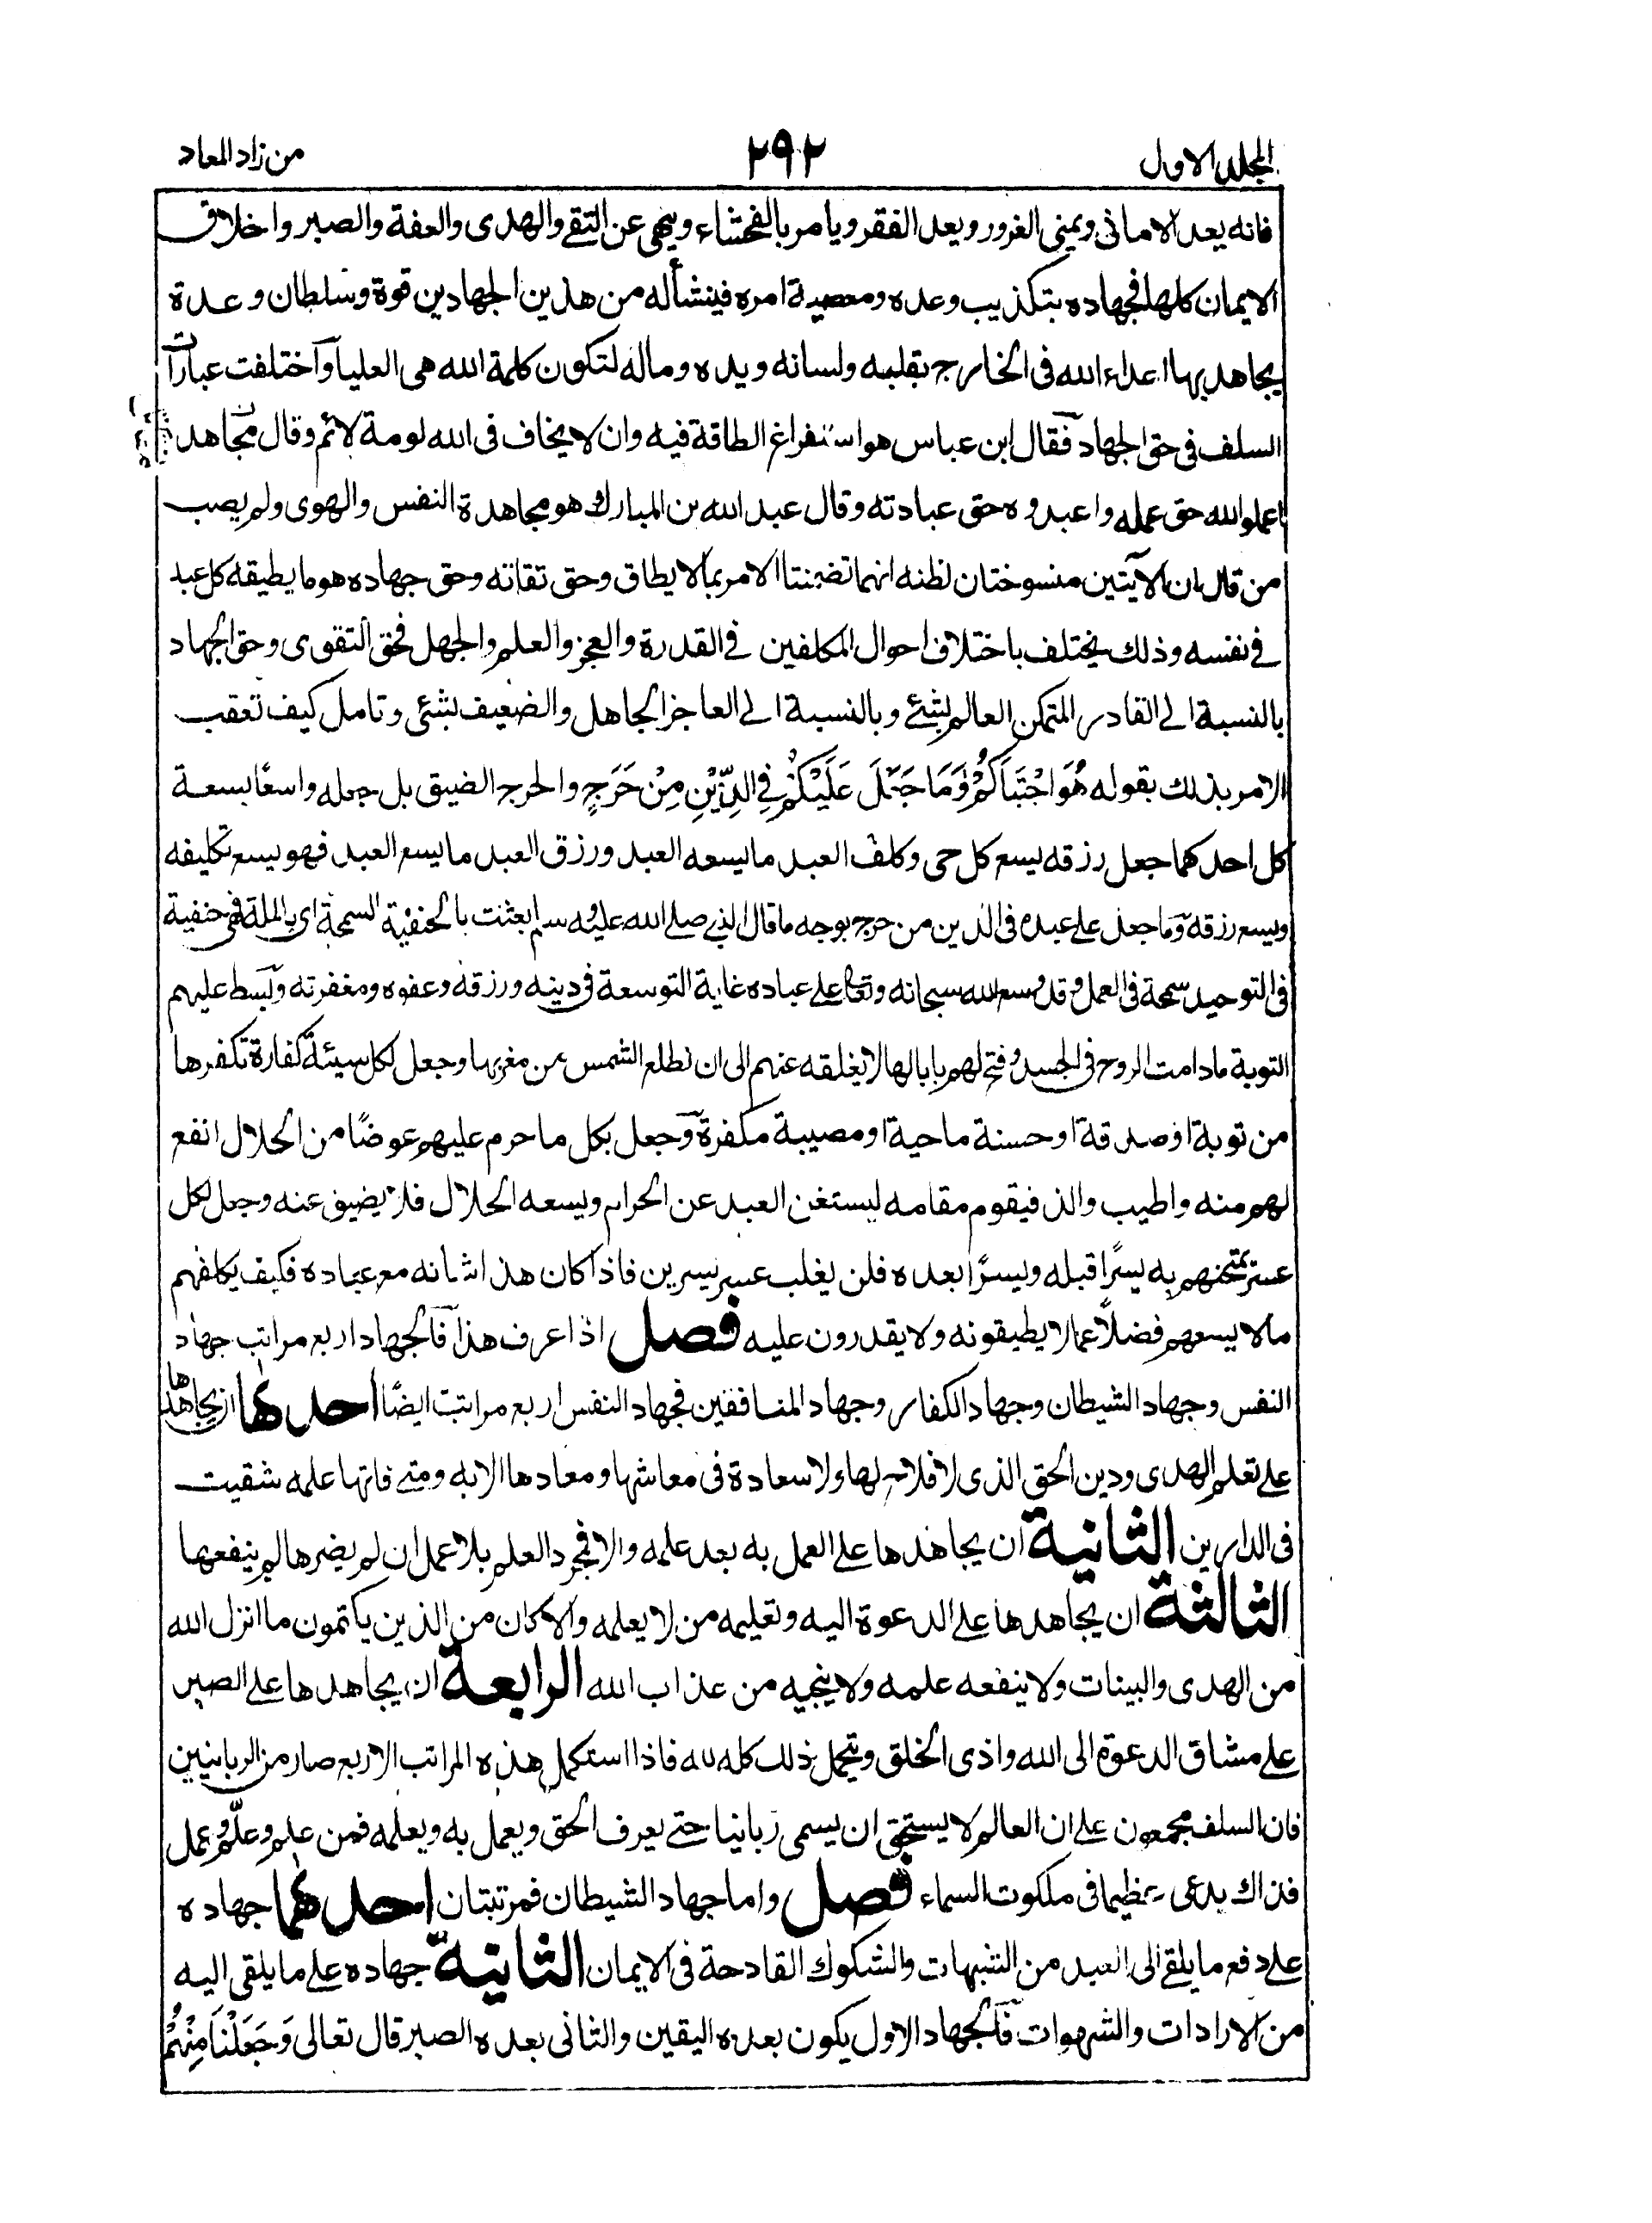 المجلد الاول
٢٩٢
من زاد المعاد
فانه يعد الامانى ويمنى الغرور ويعد الفقر ويامر بالفحشاء وينهى عن التقے والهدى والعفة والصبر واخلاق
الايمان كلها فجهاده بتكذيب وعده ومعصية امره فينشأله من هذين الجهادين قوة وسلطان وعدة
يجاهد بها اعداء الله فى الخارج بقلبه ولسانه ويده وماله لتكون كلمة الله هى العليا واختلفت عبارات
السلف فى حق الجهاد فقال ابن عباس هو استفراغ الطاقة فيه وان لا يخاف فى الله لومة لائم وقال مجاهد
اعملوا لله حق عمله واعبدوه حق عبادته وقال عبد الله بن المبارك هو مجاهدة النفس والهوى ولم يصب
من قال ان الآيتين منسوختان لظنه انهما تضمنتا الامر بما لا يطاق وحق تقاته وحق جهاده هو ما يطيقه كل عبد
فے نفسه وذلك يختلف باختلاف احوال المكلفين فے القدرة والعجز والعلم والجهل فحق التقوى وحق الجهاد
بالنسبة الے القادر المتمكن العالم بشئے وبالنسبة الے العاجز الجاهل والضعيف بشئى وتامل كيف تعقب
الامر بذلك بقوله هُوَ اجْتَبَاكُمْ وَمَا جَعَلَ عَلَيْكُمْ فِے الدِّيْنِ مِنْ حَرَجٍ والحرج الضيق بل جعله واسعًا بسعة
كل احد كما جعل رزقه يسع كل حى وكلف العبد ما يسعه العبد ورزق العبد ما يسع العبد فهو يسع تكليفه
ويسع رزقه وما جعل علے عبده فى الدين من حرج بوجه ما قال النبے صلے الله عليه وسلم بعثت بالحنفية السمحة اى بالملة فهى حنفية
فى التوحيد سمحة فى العمل وقد وسع الله سبحانه وتعالى علے عباده غاية التوسعة فى دينه ورزقه وعفوه ومغفرته وبسط عليهم
التوبة مادامت الروح فى الجسد وفتح لهم بابا لها لا يغلقه عنهم الى ان تطلع الشمس من مغربها وجعل لكل سيئة كفارة تكفرها
من توبة او صدقة او حسنة ماحية او مصيبة مكفرة وجعل بكل ما حرم عليهم عوضًا من الحلال انفع
لهم منه واطيب والذ فيقوم مقامه ليستغن العبد عن الحرام ويسعه الحلال فلا يضيق عنه وجعل لكل
عسر يمتحنهم به يسرًا قبله ويسرًا بعده فلن يغلب عسر يسرين فاذا كان هذا شانه مع عباده فكيف يكلفهم
مالا يسعهم فضلاً عما لا يطيقونه ولا يقدرون عليه فصل اذا عرف هذا فالجهاد اربع مراتب جهاد
النفس وجهاد الشيطان وجهاد الكفار وجهاد المنافقين فجهاد النفس اربع مراتب ايضًا احدٰها ان يجاهدها
علے تعلم الهدى ودين الحق الذى لا فلاح لها ولا سعادة فى معاشها ومعادها الا به ومتے فاتها علمه شقيت
فى الدارين الثانية ان يجاهدها علے العمل به بعد علمه والا فمجرد العلم بلا عمل ان لم يضرها لم ينفعها
الثالثة ان يجاهدها علے الدعوة اليه وتعليمه من لا يعلمه والا كان من الذين يكتمون ما انزل الله
من الهدى والبينات ولا ينفعه علمه ولا ينجيه من عذاب الله الرابعة ان يجاهدها علے الصبر
علے مشاق الدعوة الى الله واذى الخلق ويتحمل ذلك كله لله فاذا استكمل هذه المراتب الاربع صار من الربانيين
فان السلف مجمعون علے ان العالم لا يستحق ان يسمى ربانيا حتے يعرف الحق ويعمل به ويعلمه فمن علم وعلّم وعمل
فذاك يدعى عظيما فى ملكوت السماء فصل واما جهاد الشيطان فمرتبتان احدٰهما جهاده
علے دفع ما يلقے الى العبد من الشبهات والشكوك القادحة فى الايمان الثانية جهاده علے ما يلقى اليه
من الارادات والشهوات فالجهاد الاول يكون بعده اليقين والثانى بعده الصبر قال تعالى وَجَعَلْنَا مِنْهُمْ